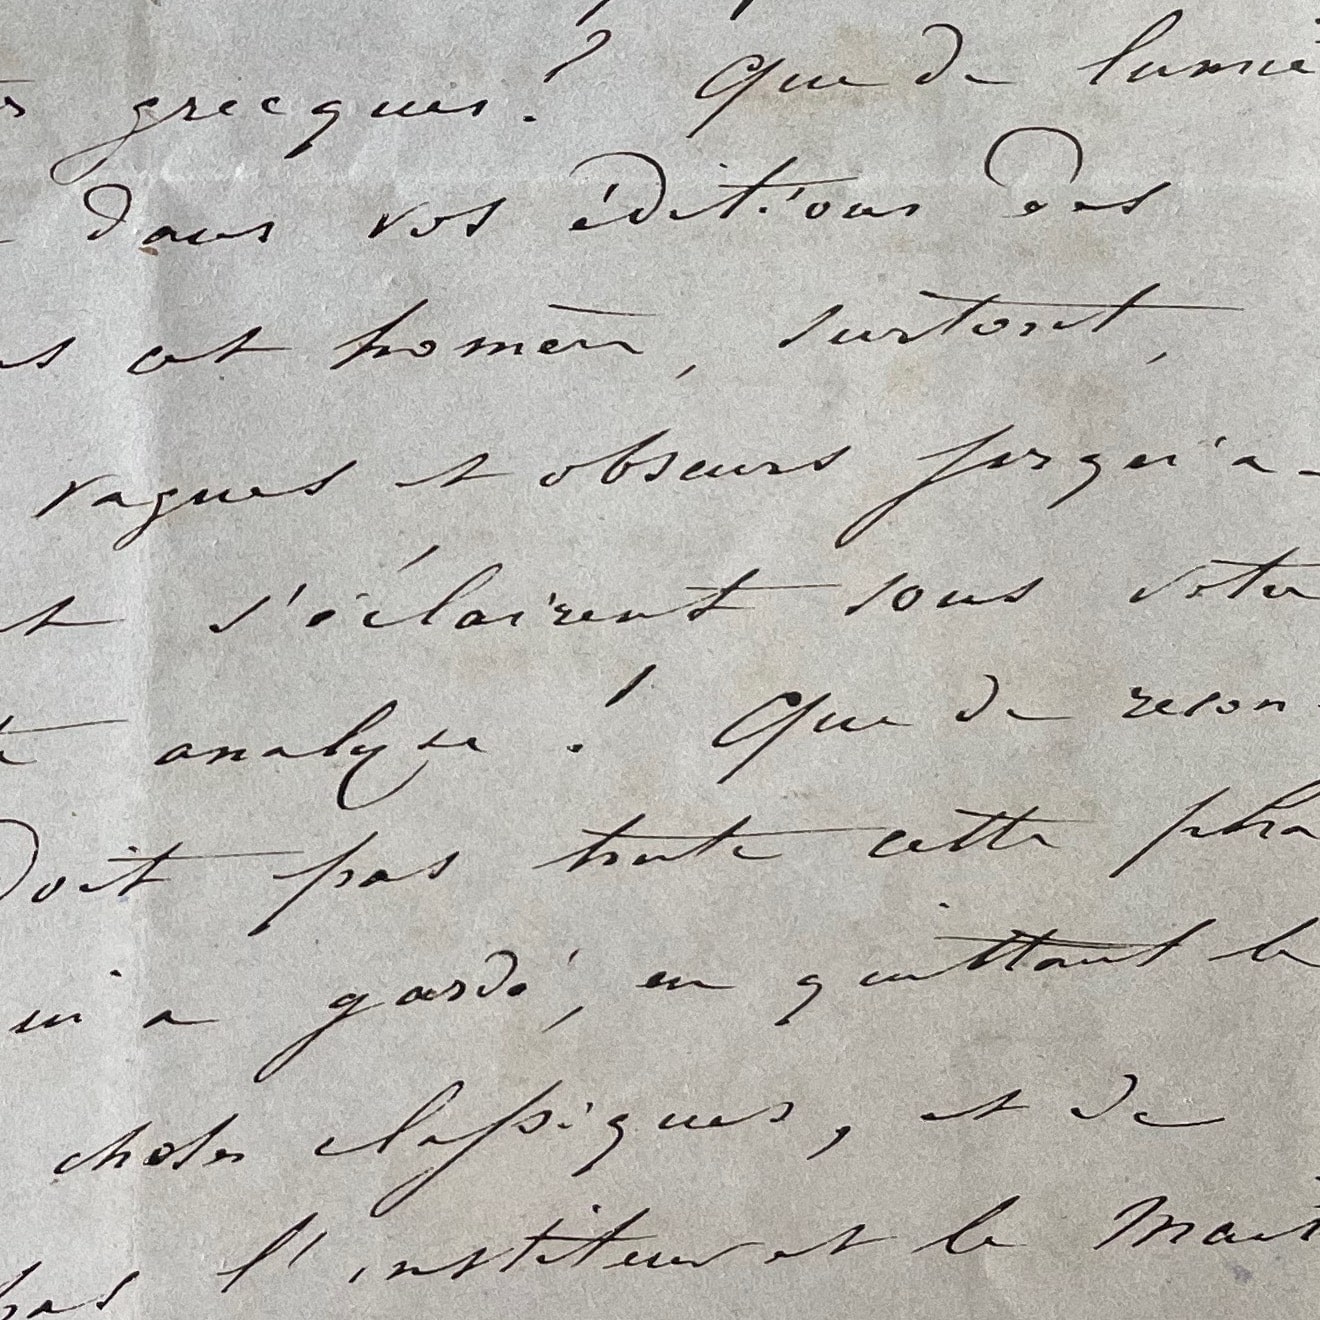 grecques ? Que de lumiè
dans vos éditions des
cet homère, surtout,
vagues et obscurs jusqu'a-
s'éclairent sous votre
analyse ! Que de recon-
doit pas toute cette phra
a gardé, en quittant le
choses classiques, et de
pas l'instituteur et le Mait